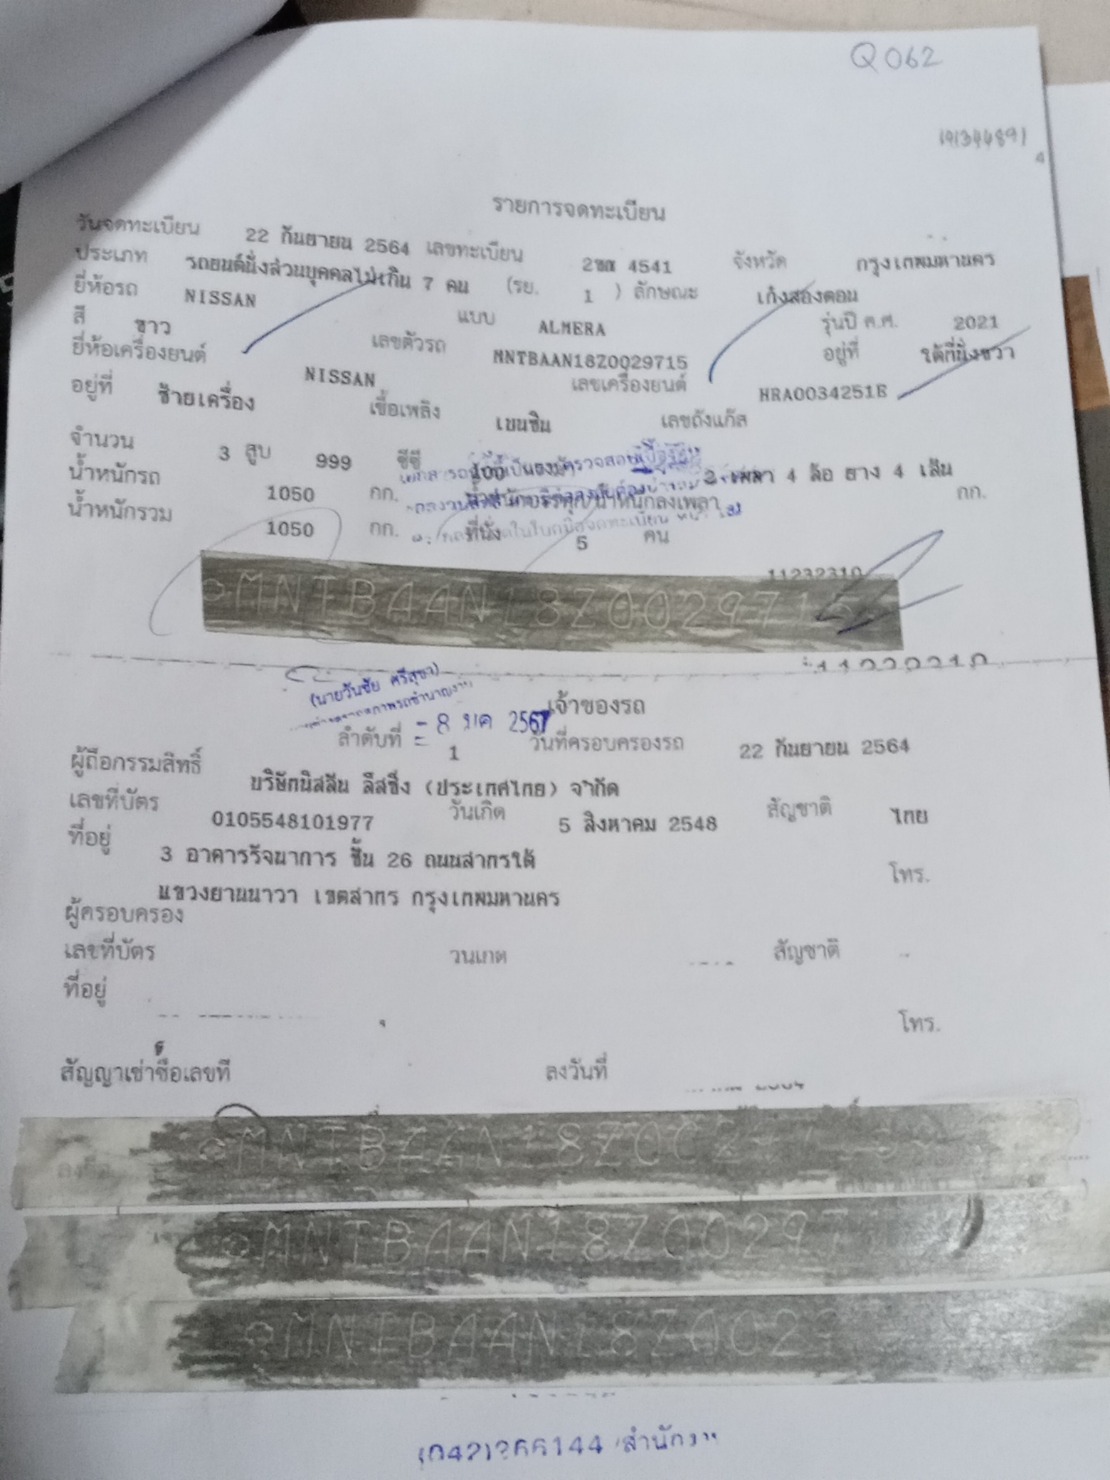 Q062
4
รายการจดทะเบียน
วันจดทะเบียน 22 กันยายน 2564 เลขทะเบียน 4541 จังหวัด กรุงเทพมหานคร
ประเภท รถยนต์นั่งส่วนบุคคลไม่เกิน 7 คน (รย. 1 ) ลักษณะ เก๋งสองตอน
ยี่ห้อรถ NISSAN แบบ ALMERA รุ่นปี ค.ศ. 2021
สี ขาว เลขตัวรถ MNTBAAN18Z0029715 อยู่ที่ ใต้ที่นั่งขวา
ยี่ห้อเครื่องยนต์ NISSAN เลขเครื่องยนต์ HRA0034251B
อยู่ที่ ซ้ายเครื่อง เชื้อเพลิง เบนซิน เลขถังแก๊ส
จำนวน 3 สูบ 999 ซีซี 100 2 เพลา 4 ล้อ ยาง 4 เส้น
น้ำหนักรถ 1050 กก. น้ำหนักบรรทุก/น้ำหนักลงเพลา กก.
น้ำหนักรวม 1050 กก. ที่นั่ง 5 คน
11232310
MNTBAAN18Z0029715
(นายวันชัย ศรีสุชา)
- 8 มค 2567
เจ้าของรถ
ลำดับที่ 1 วันที่ครอบครองรถ 22 กันยายน 2564
ผู้ถือกรรมสิทธิ์ บริษัทนิสสัน ลีสซิ่ง (ประเทศไทย) จำกัด
เลขที่บัตร 0105548101977 วันเกิด 5 สิงหาคม 2548 สัญชาติ ไทย
ที่อยู่ 3 อาคารรัจนาการ ชั้น 26 ถนนสาทรใต้ โทร.
แขวงยานนาวา เขตสาทร กรุงเทพมหานคร
ผู้ครอบครอง
เลขที่บัตร วันเกิด สัญชาติ
ที่อยู่ โทร.
สัญญาเช่าซื้อเลขที่ ลงวันที่
MNTBAAN18Z00
MNTBAAN18Z00297
MNTBAAN18Z0029
(042)266144 สำนักงาน